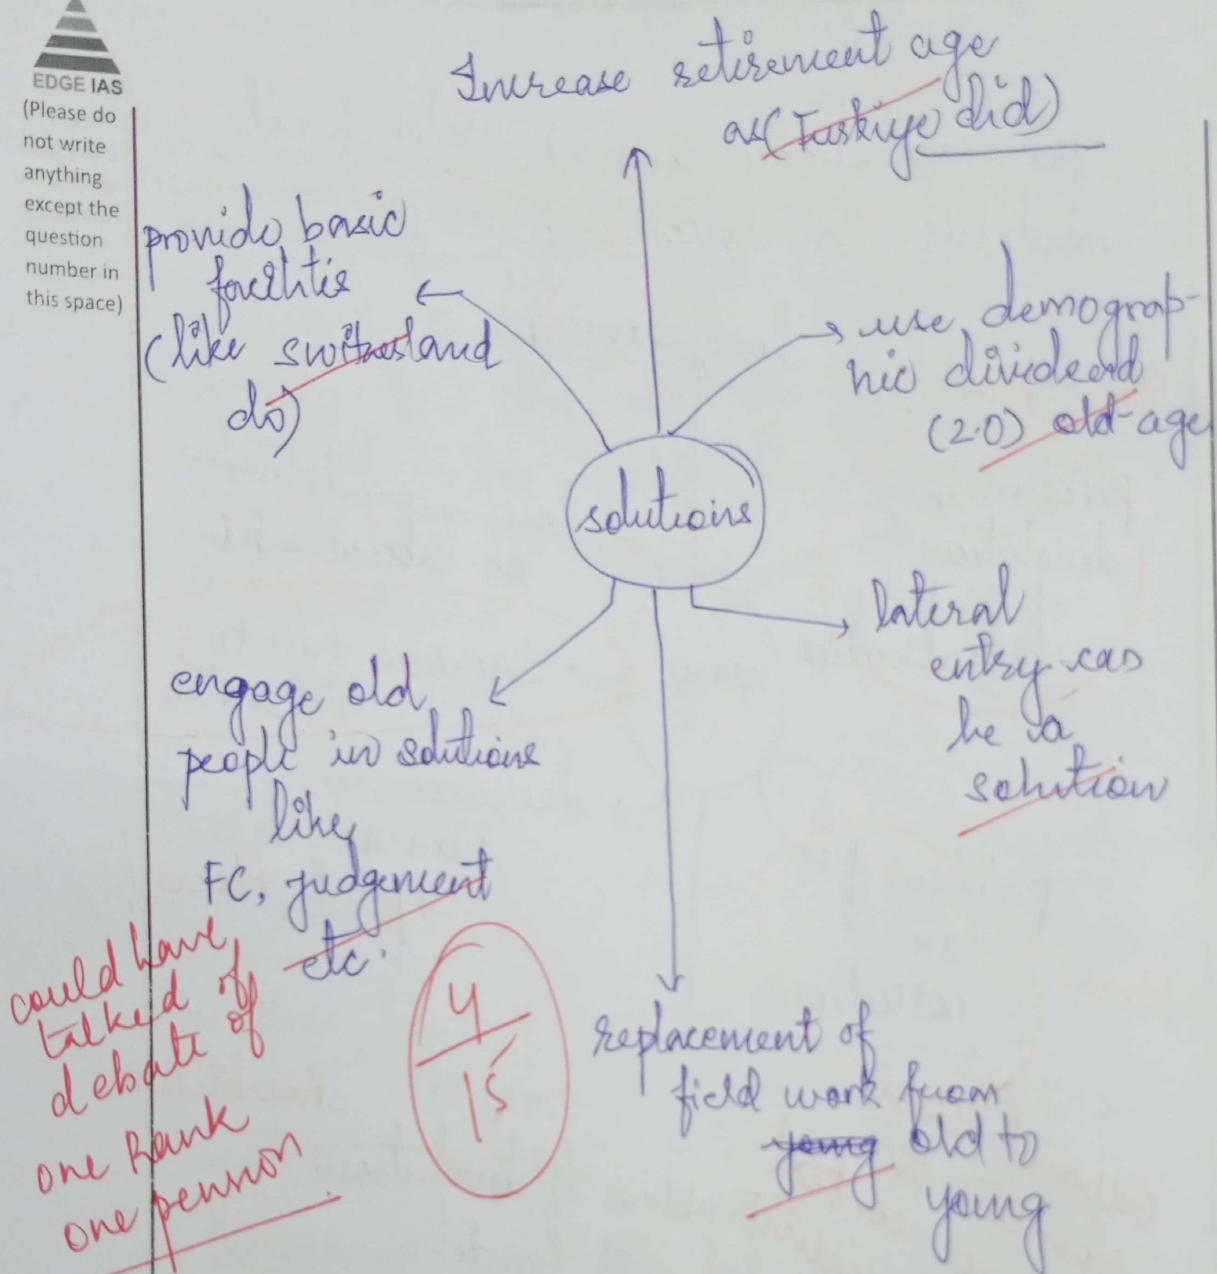 EDGE IAS
(Please do
not write
anything
except the
question
number in
this space)
Increase retirement age
as (Turkiye did)
provide basic
facilities
(like switzerland
do)
use demograp-
hic dividend
(2.0) old-age
solutions
lateral
entry can
be a
solution
engage old
people in solutions
like
FC, judgement
etc.
replacement of
field work from
young old to
young
could have
talked of
debate of
one Rank
one pension
4
15